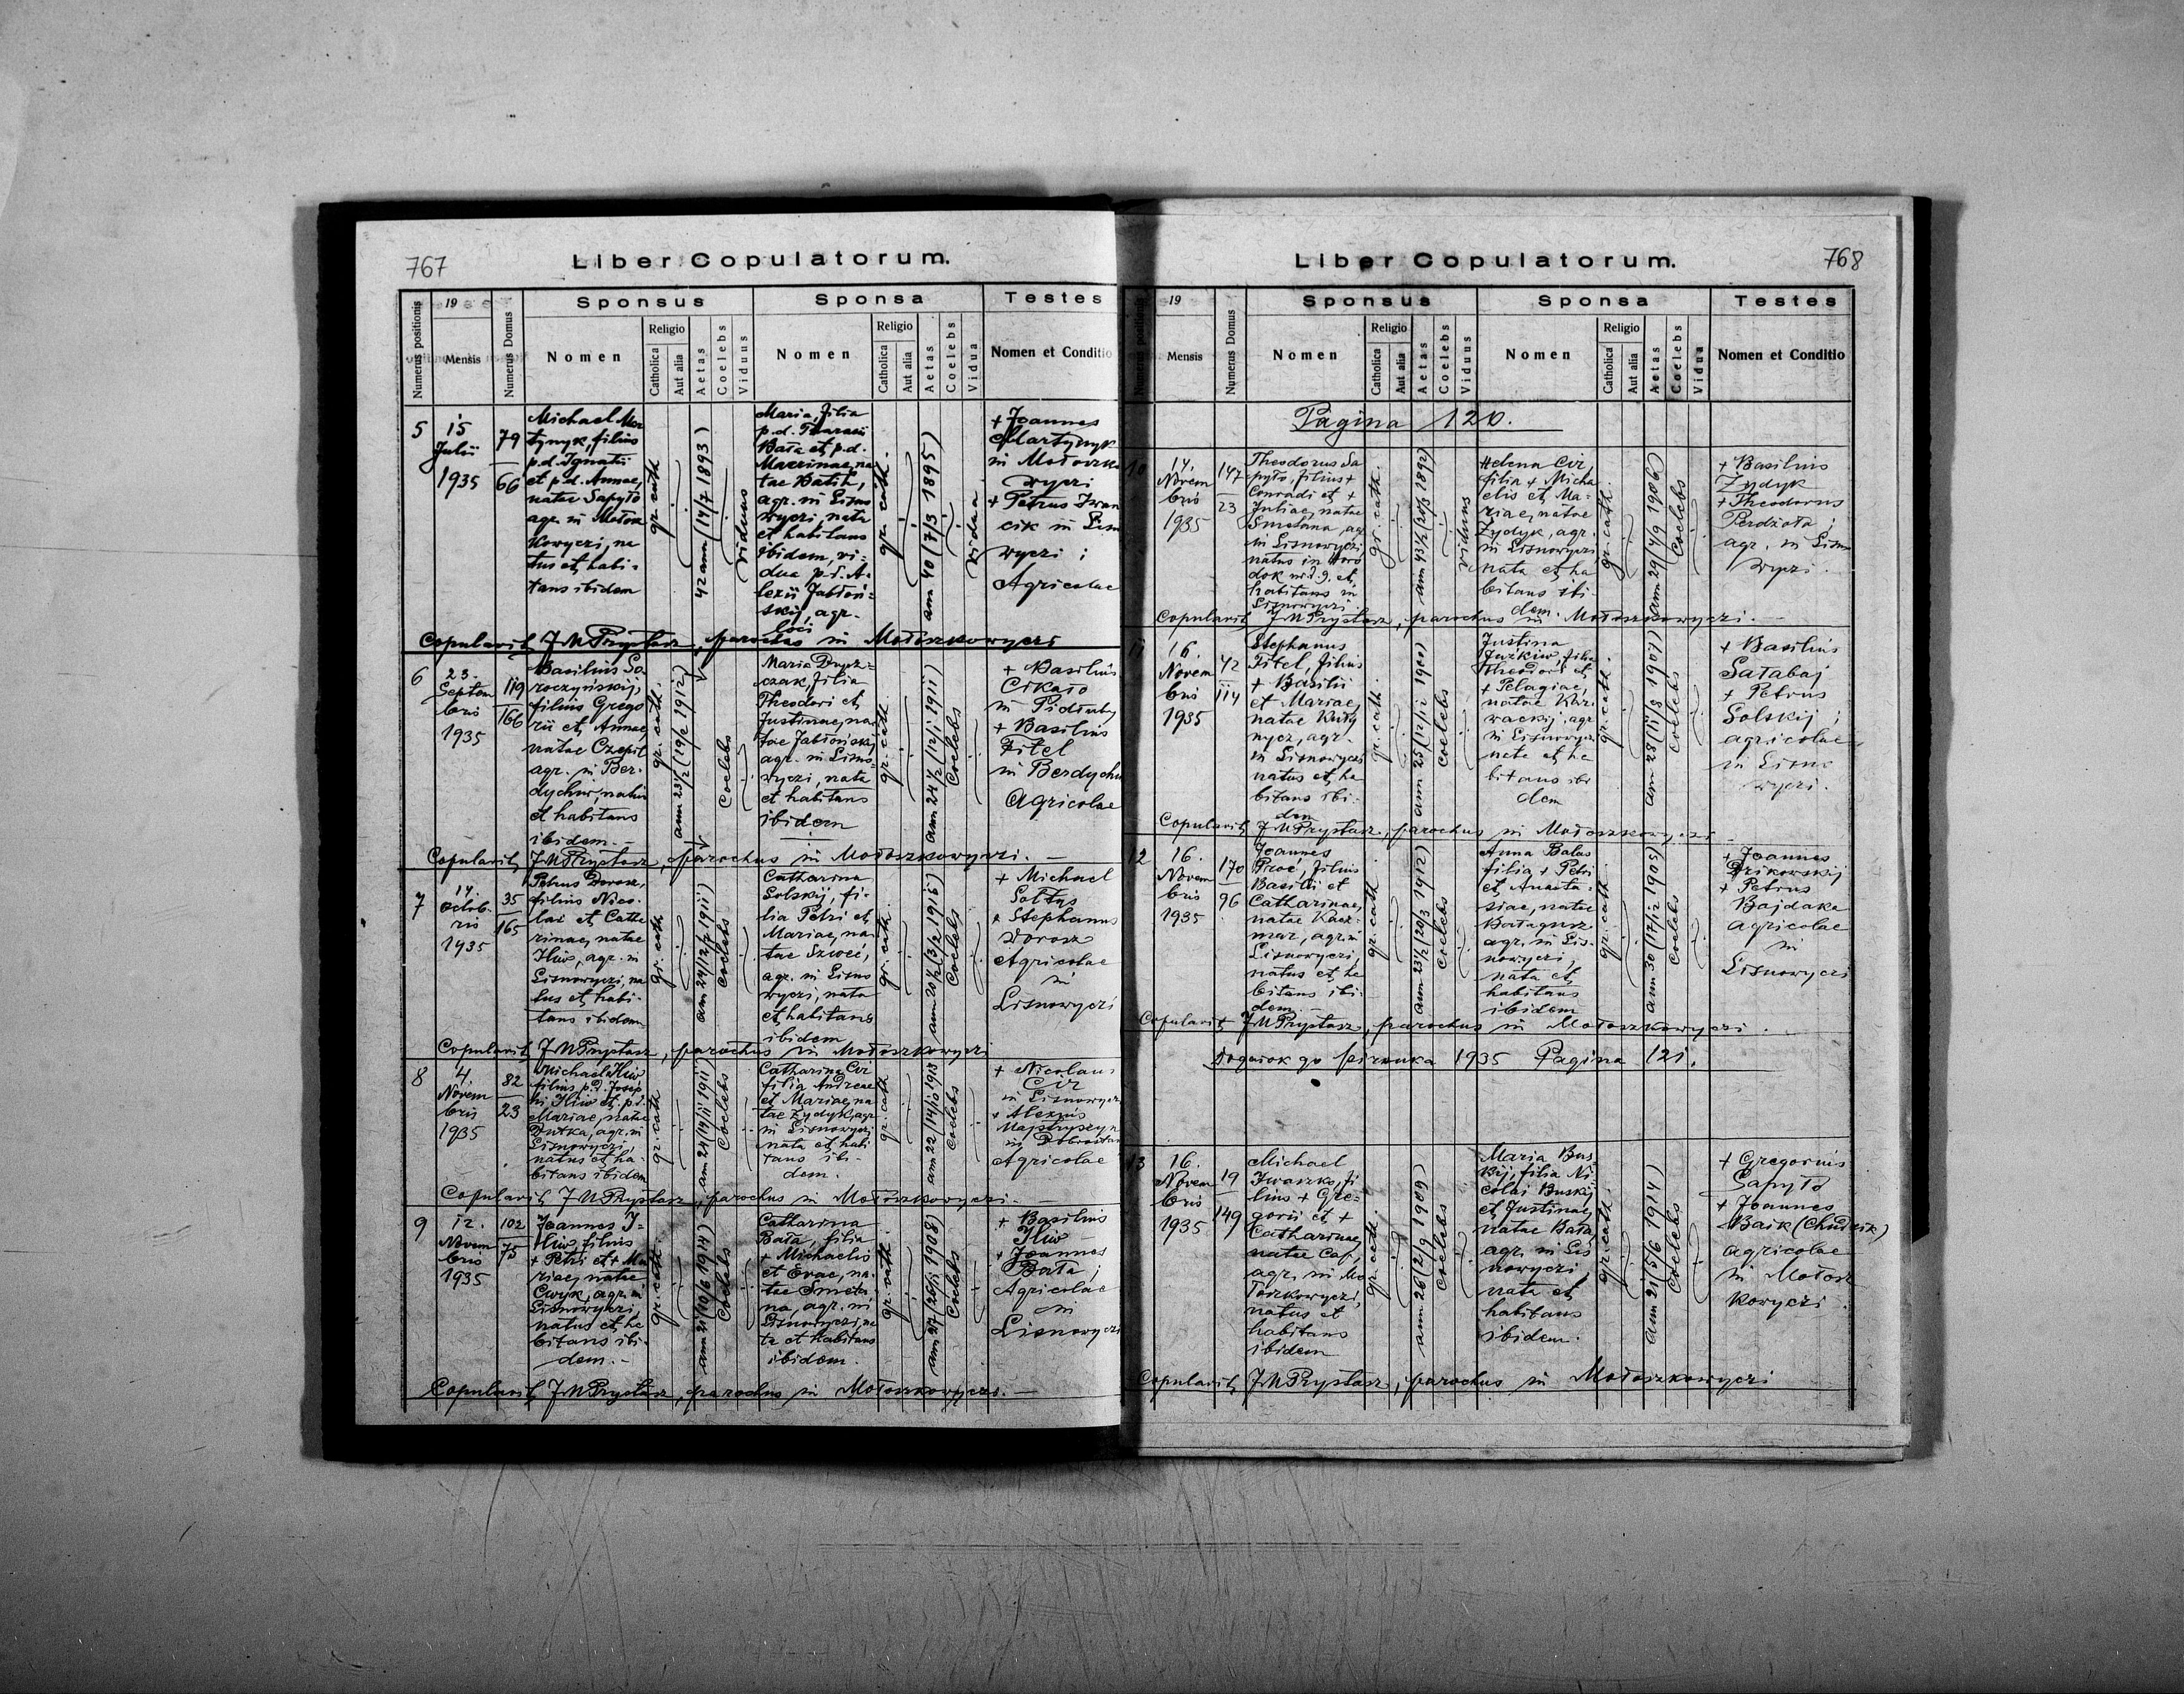 767
Liber Copulatorum.
Numerus positionis
19
Mensis
Numerus Domus
Sponsus
Nomen
Religio
Catholica
Aut alia
Aetas
Coelebs
Viduus
Sponsa
Nomen
Religio
Catholica
Aut alia
Aetas
Coelebs
Vidua
Testes
Nomen et Conditio
5
15
Julii
1935
79
66
Michael Mar
tynyk, filius
p.d. Ignatii
et p.d. Annae,
natae Sapyło
agr. in Mołosz
kowyczi, na
tus et habi-
tans ibidem
gr. cath
42 ann (14/7 1893)
viduus
Maria, filia
p.d. Tarasii
Bała et p.d.
natae Batih,
agr. in Lisno
wyczi, nata
et habitans
ibidem, vi-
dua p.d. A-
lexii Jabłoń-
skij, agr.
loci
gr. cath.
ann 40 (7/3 1895)
vidua
+ Joannes
Martynyk
in Mołoszko
wyczi
+ Petrus Iwan
cik in Lisno
wyczi ;
Agricolae
Copulavit JMPrystasz, parochus in Mołoszkowyczi
6
23.
Septem
bris
1935
119
166
Basilius Sa
roczyńskij,
filius Grego
rii et Annae,
natae Czepil
agr. in Ber-
dychiw, natus
et habitans
ibidem. -
gr. cath.
ann 23½ (19/2 1912)
Coelebs
Maria Dvor-
czak, filia
Theodori et
Justinae, na-
tae Jabłońskij
agr. in Lisno-
wyczi, nata
et habitans
ibidem
gr. cath
ann 24½ (12/1 1911)
Coelebs
+ Basilius
Cikało
in Pidłuby
+ Basilius
Fitel
in Berdychiw
Agricolae
Copulavit JMPrystasz, parochus in Mołoszkowyczi. -
7
14.
Octob-
ris
1935
35
165
Petrus Dorosz,
filius Nico-
lai et Catha
rinae, natae
Iliw, agr. in
Lisnowyczi, na
tus et habi-
tans ibidem
gr. cath
ann 24 (12/7 1911)
Coelebs
Catharina
Solskij, fi-
lia Petri et
Mariae, na-
tae Szweć,
agr. in Lisno
wyczi, nata
et habitans
ibidem
gr. cath.
ann 20½ (3/2 1915)
Coelebs
+ Michael
Sołtys
+ Stephanus
Dorosz
Agricolae
in
Lisnowyczi
Copulavit JMPrystasz, parochus in Mołoszkowyczi
8
4.
Novem
bris
1935
82
23
Michael Iliw
filius p.d. Josep
hi Iliw et p.d.
Mariae, natae
Dutka, agr. in
Lisnowyczi,
natus et ha-
bitans ibidem
gr. cath
ann 24 (14/11 1911)
Coelebs
Catharina Cir
filia Andreae
et Mariae, na
tae Zydyk, agr.
in Lisnowyczi
nata et habi
tans ibi-
dem.
gr. cath
ann 22 (14/10 1913
Coelebs
+ Nicolaus
Cir
in Lisnowyczi
+ Alexius
in Dobrostan
Agricolae
Copulavit JMPrystasz, parochus in Mołoszkowyczi. -
9
12.
Novem
bris
1935
102
75
Joannes I-
liw, filius
+ Petri et + Ma
riae, natae
Cwyk, agr. in
Lisnowyczi,
natus et ha
bitans ibi-
dem. -
gr. cath.
ann 21 (10/6 1914)
Coelebs
Catharina
Bała, filia
+ Michaelis
et Evae, na-
tae Smeta-
na, agr. in
Lisnowyczi, na
ta et habitans
ibidem.
gr. cath.
ann 27 (26/1 1908)
Coelebs
+ Basilius
Iliw
+ Joannes
Bała ;
Agricolae
in
Lisnowyczi
Copulavit JMPrystasz, parochus in Mołoszkowyczi. -
768
Liber Copulatorum.
Numerus positionis
19
Mensis
Numerus Domus
Sponsus
Nomen
Religio
Catholica
Aut alia
Aetas
Coelebs
Viduus
Sponsa
Nomen
Religio
Catholica
Aut alia
Aetas
Coelebs
Vidua
Testes
Nomen et Conditio
Pagina 120.
10
14.
Novem
bris
1935
147
23
Theodorus Sa
pyło, filius +
Conradi et +
Juliae, natae
Smetana, agr
in Lisnowyczi
natus in Horo
dok nrd. 9. et
habitans in
Lisnowyczi
gr. cath.
ann 43½ (20/3 1892)
viduus
Helena Cir,
filia + Micha
elis et Ma-
riae, natae
Zydyk, agr.
in Lisnowyczi
nata et ha
bitans ibi-
dem.
gr. cath.
ann 29 (4/9 1906)
Coelebs
+ Basilius
Zydyk
+ Theodorus
Perdziola ;
agr. in Lisno
wyczi.
Copulavit JMPrystasz, parochus in Mołoszkowyczi. -
11
16.
Novem
bris
1935
42
114
Stephanus
Fitel, filius
+ Basilii
et Mariae,
natae Kudy
nycz, agr.
in Lisnowyczi
natus et ha
bitans ibi-
dem
gr. cath.
ann 25 (12/12 1900)
Coelebs
Justina
Juzkiw, filia
Theodori et
+ Pelagiae,
natae Kur-
wackij, agr
in Lisnowyczi
nata et ha
bitans ibi
dem
gr. cath.
ann 28 (11/8 1907)
Coelebs
+ Basilius
Sałabaj
+ Petrus
Solskij ;
agricolae
in Lisno
wyczi.
Copulavit JMPrystasz, parochus in Mołoszkowyczi -
12
16.
Novem
bris
1935
170
96
Joannes
Proć, filius
Basilii et
Catharinae,
natae Kacz-
mar, agr. in
Lisnowyczi,
natus et ha
bitans ibi-
dem. -
gr. cath
ann 23½ (20/3 1912)
Coelebs
Anna Balas
filia + Petri
et Anasta-
siae, natae
Bałagusz
agr. in Lis-
nowyczi,
nata et
habitans
ibidem
gr. cath
ann 30 (17/12 1905)
Coelebs
+ Joannes
Dzikowskij
+ Petrus
Bajdała
Agricolae
in
Lisnowyczi
Copulavit JMPrystasz, parochus in Mołoszkowyczi.
1935 Pagina 121.
13
16.
Novem
bris
1935
19
149
Michael
Iwaszko, fi
lius + Gre-
gorii et +
Catharinae,
natae Cap,
agr. in Mo
łoszkowyczi,
natus et
habitans
ibidem
gr. cath.
ann 26 (2/9 1909)
Coelebs
Maria Bus
kij, filia Ni
colai Buskij
et Justinae,
natae Bała,
agr. in Lis
nowyczi,
nata et
habitans
ibidem.
gr. cath
ann 21 (5/6 1914)
Coelebs
+ Gregorius
Sapyło
+ Joannes
Baik (Chudzik)
agricolae
in Mołosz
kowyczi.
Copulavit JMPrystasz, parochus in Mołoszkowyczi